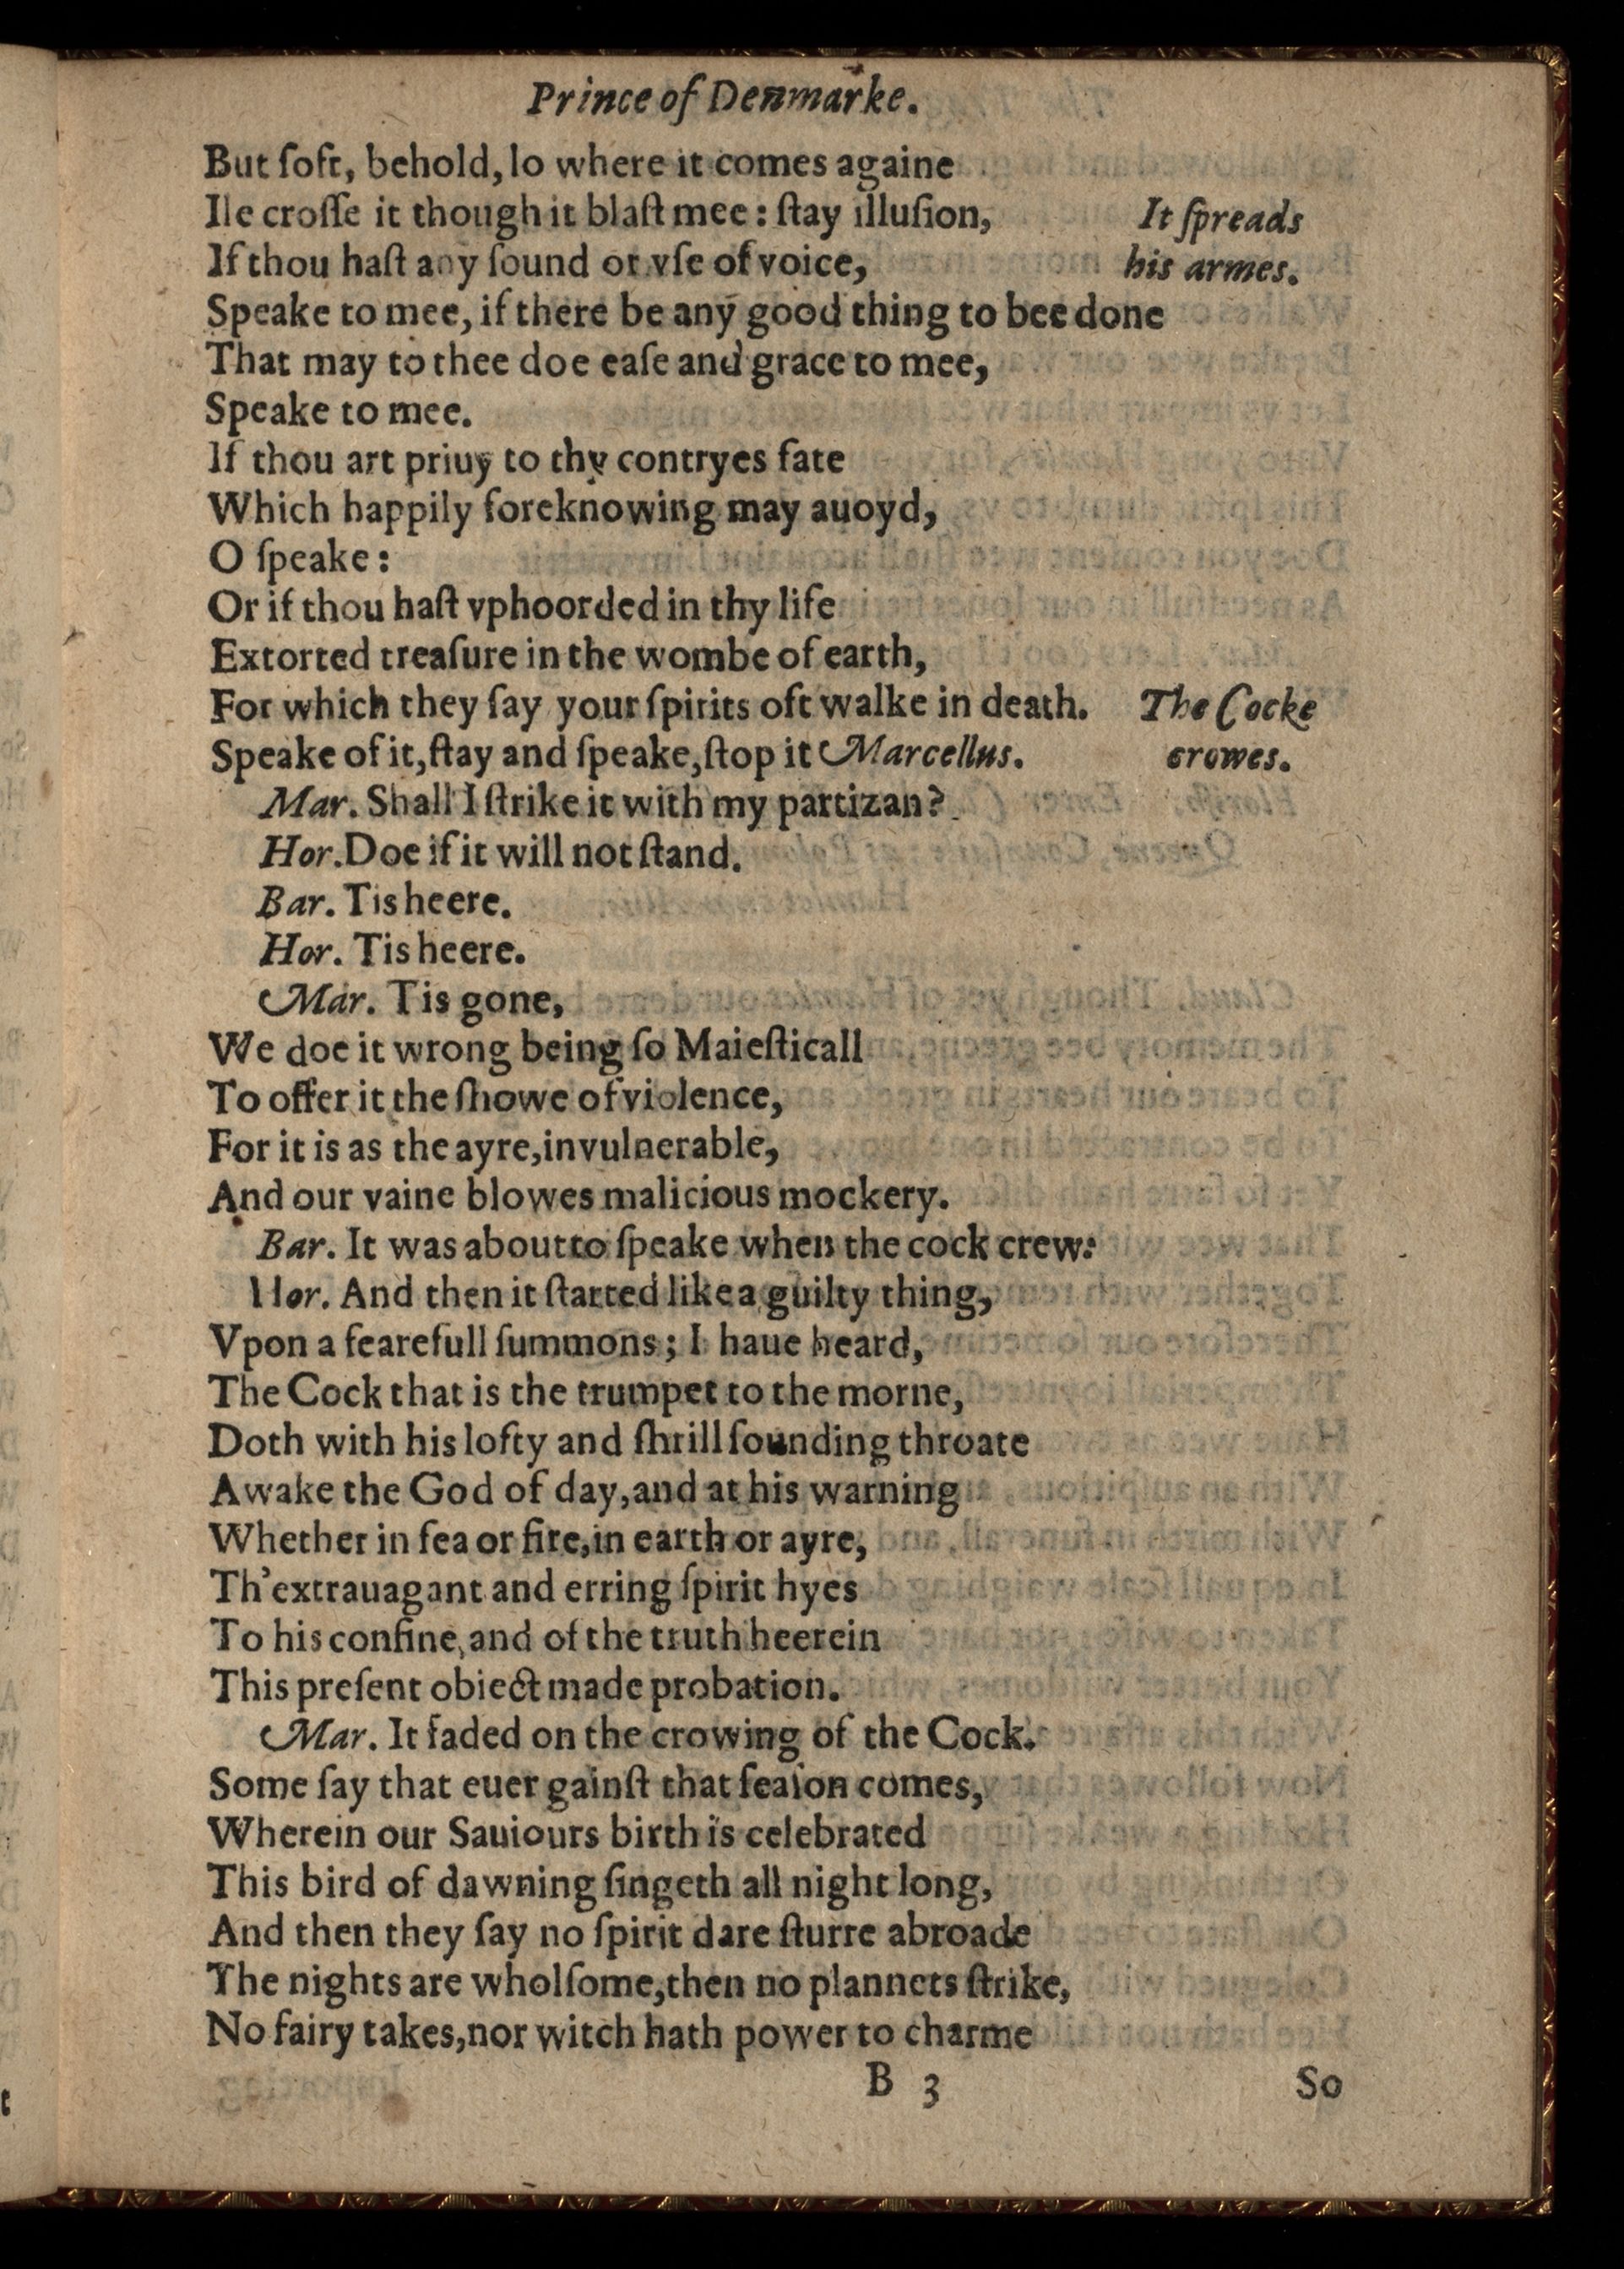 Prince of Denmarke.
But ſoft, behold, lo where it comes againe
Ile croſſe it though it blaſt mee: ſtay illuſion,
It ſpreads
If thou haſt any ſound or vſe of voice,
his armes.
Speake to mee, if there be any good thing to bee done
That may to thee doe eaſe and grace to mee,
Speake to mee.
If thou art priuy to thy contryes fate
Which happily foreknowing may auoyd,
O ſpeake:
Or if thou haſt vphoorded in thy life
Extorted treaſure in the wombe of earth,
For which they ſay your ſpirits oft walke in death.
The Cocke
Speake of it, ſtay and ſpeake, ſtop it Marcellus.
crowes.
Mar. Shall I ſtrike it with my partizan?
Hor. Doe if it will not ſtand.
Bar. Tis heere.
Hor. Tis heere.
Mar. Tis gone,
We doe it wrong being ſo Maieſticall
To offer it the ſhowe of violence,
For it is as the ayre, invulnerable,
And our vaine blowes malicious mockery.
Bar. It was about to ſpeake when the cock crew:
Hor. And then it ſtarted like a guilty thing,
Vpon a fearefull ſummons; I haue heard,
The Cock that is the trumpet to the morne,
Doth with his lofty and ſhrill ſounding throate
Awake the God of day, and at his warning
Whether in ſea or fire, in earth or ayre,
Th'extrauagant and erring ſpirit hyes
To his confine, and of the truth heerein
This preſent obiect made probation.
Mar. It faded on the crowing of the Cock.
Some ſay that euer gainſt that ſeaſon comes,
Wherein our Sauiours birth is celebrated
This bird of dawning ſingeth all night long,
And then they ſay no ſpirit dare ſturre abroade
The nights are wholſome, then no plannets ſtrike,
No fairy takes, nor witch hath power to charme
B 3
So